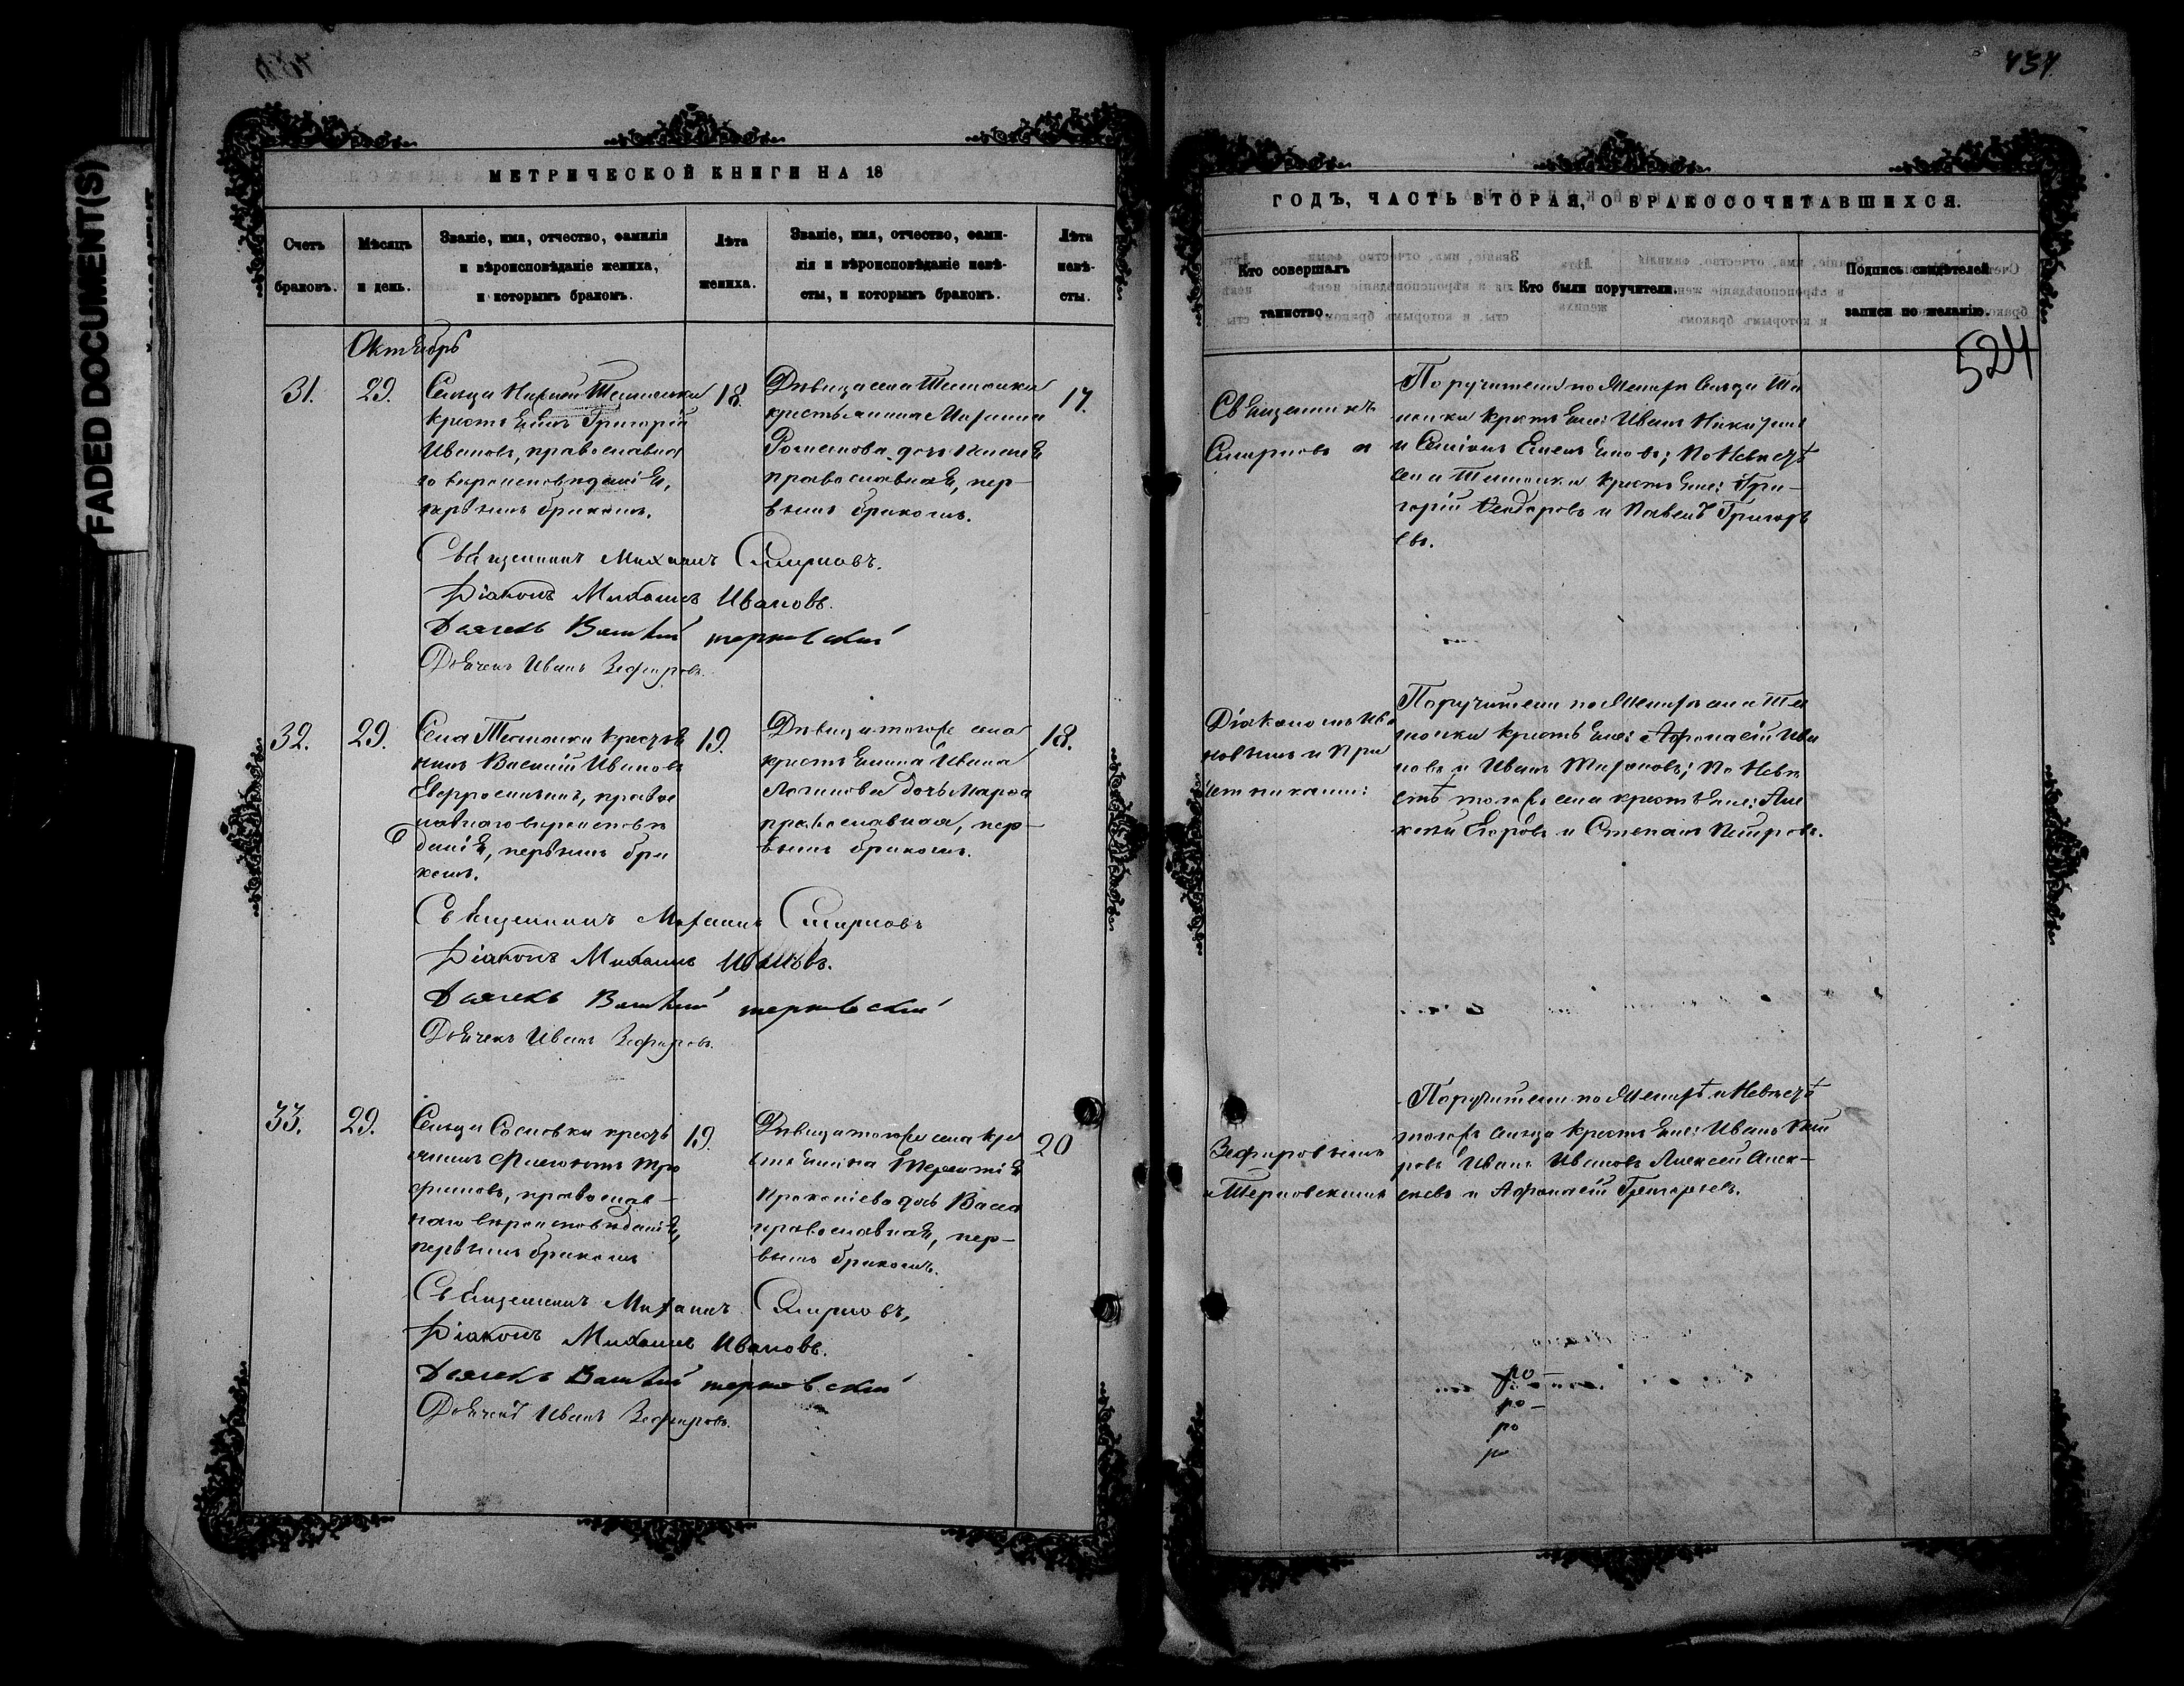 FADED DOCUMENT(S)
МЕТРИЧЕСКОЙ КНИГИ НА 18
Счетъ браковъ.
Мѣсяцъ и день.
Званіе, имя, отчество, фамилія
и вѣроисповѣданіе жениха,
и которымъ бракомъ.
Лѣта жениха.
Званіе, имя, отчество, фами-
лія и вѣроисповѣданіе невѣ-
сты, и которымъ бракомъ.
Лѣта невѣ-
сты.
Октябрь
31.
29.
Сельца
крестьянинъ Григорій
Ивановъ, православна
го вѣроисповѣданія,
первымъ бракомъ.
18.
Дѣвица села
крестьянина
дочь
православная, пер-
вымъ бракомъ.
17.
Священникъ Михаилъ Смирновъ.
Діаконъ Михаилъ Ивановъ.
Дьячекъ Василій Терновскій
Дьячекъ Иванъ Зефировъ.
32.
29.
Села крестья
нинъ Василій Ивановъ
правос
лавнаго вѣроисповѣ
данія, первымъ бра
комъ.
19.
Дѣвица тогоже села
крестьянина Ивана
дочь Марѳа
православная, пер-
вымъ бракомъ.
18.
Священникъ Михаилъ Смирновъ
Діаконъ Михаилъ Ивановъ.
Дьячекъ Василій Терновскій
Дьячекъ Иванъ Зефировъ.
33.
29.
Сельца Сосновки кресть
янинъ Филимонъ Тро
фимовъ, православ-
наго вѣроисповѣданія,
первымъ бракомъ
19.
Дѣвица тогоже села кре
стьянина Терентія
Прокопіева дочь Васса
православная, пер-
вымъ бракомъ.
20
Священникъ Михаилъ Смирновъ,
Діаконъ Михаилъ Ивановъ.
Дьячекъ Василій Терновскій
Дьячекъ Иванъ Зефировъ.
434
ГОДЪ, ЧАСТЬ ВТОРАЯ, О БРАКОСОЧЕТАВШИХСЯ.
Кто совершалъ
таинство.
Кто были поручители.
Подпись свидѣтелей
записи по желанію.
524
Священникъ
Смирновъ
Поручители по Женихѣ Сельца
крестьяне: Иванъ
и Семенъ Емельяновъ; По Невѣстѣ
села крестьяне: Гри-
горій Ѳедоровъ и Павелъ Григорь
евъ.
Діакономъ Ива
новымъ и При
четниками:
Поручители по Женихѣ села
крестьяне: Афонасій Ива
новъ и Иванъ По Невѣ
стѣ тогоже села крестьяне: Але
ксѣй Егоровъ и Степанъ Петровъ.
Зефировымъ
и Терновскимъ
Поручители по Женихѣ и Невѣстѣ
тогожъ сельца крестьяне: Иванъ
ровъ Иванъ Ивановъ Алексей Алек-
сѣевъ и Афонасій Григорьевъ.
ро-
ро-
ро
ро